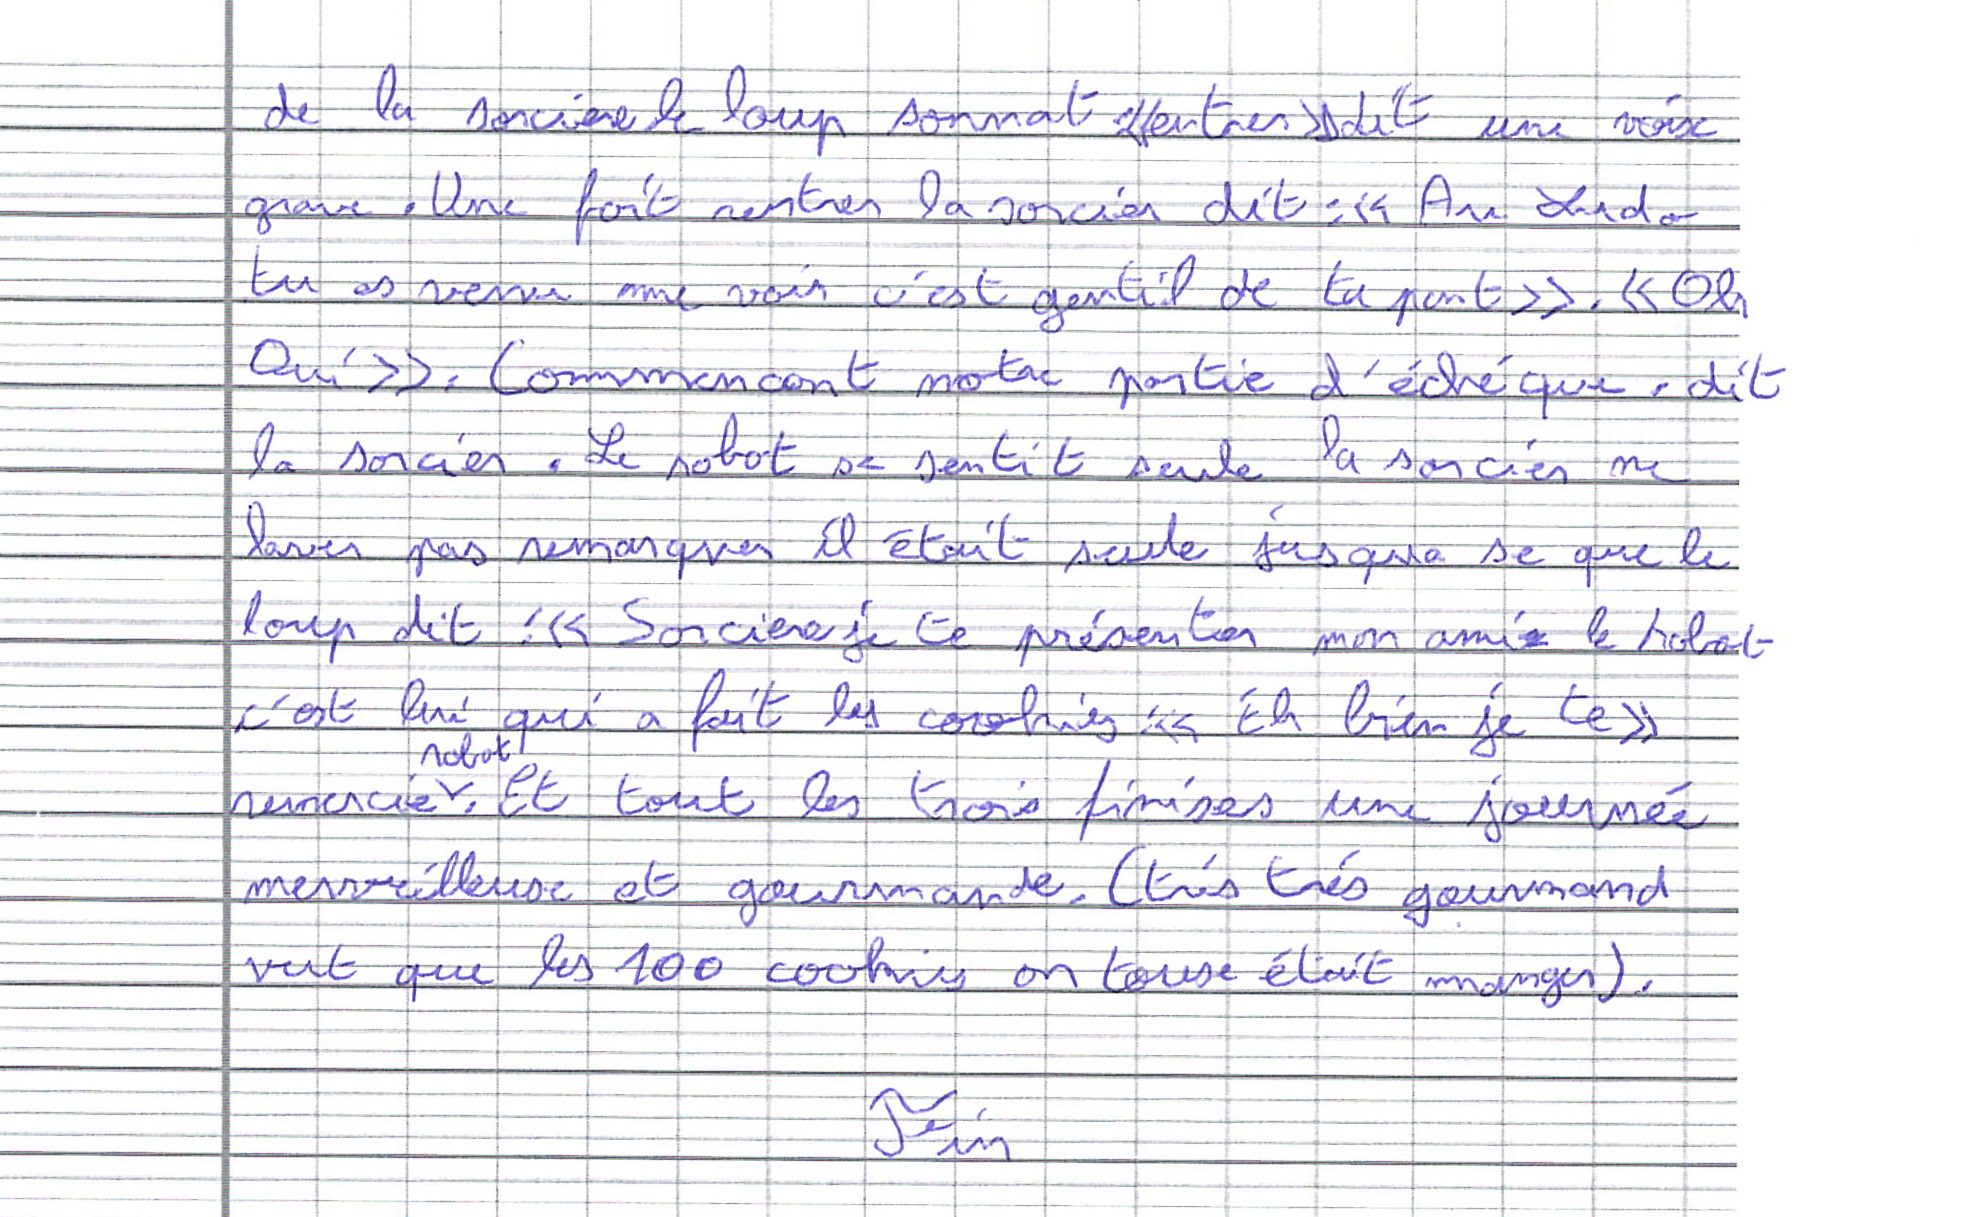 de la sorciere le loup sonnat «entrer» dit une voix
grave. Une foit rentrer la sorcier dit : « Au Ludo
tu es venu me voir c'est gentil de ta part». «Oh
Oui». Commencont notre partie d'échéque. dit
la sorcier. Le robot se sentit seule la sorcier ne
laver pas remarquer il était seule jusqua se que le
loup dit : « Sorciere je te présenter mon ami le robot
c'est lui qui a fait les cookies « Eh bien je te»
robot
remercie. Et tout les trois finises une journée
merveilleuse et gourmande. (trés trés gourmand
vut que les 100 cookies on touse était manger).
Fin